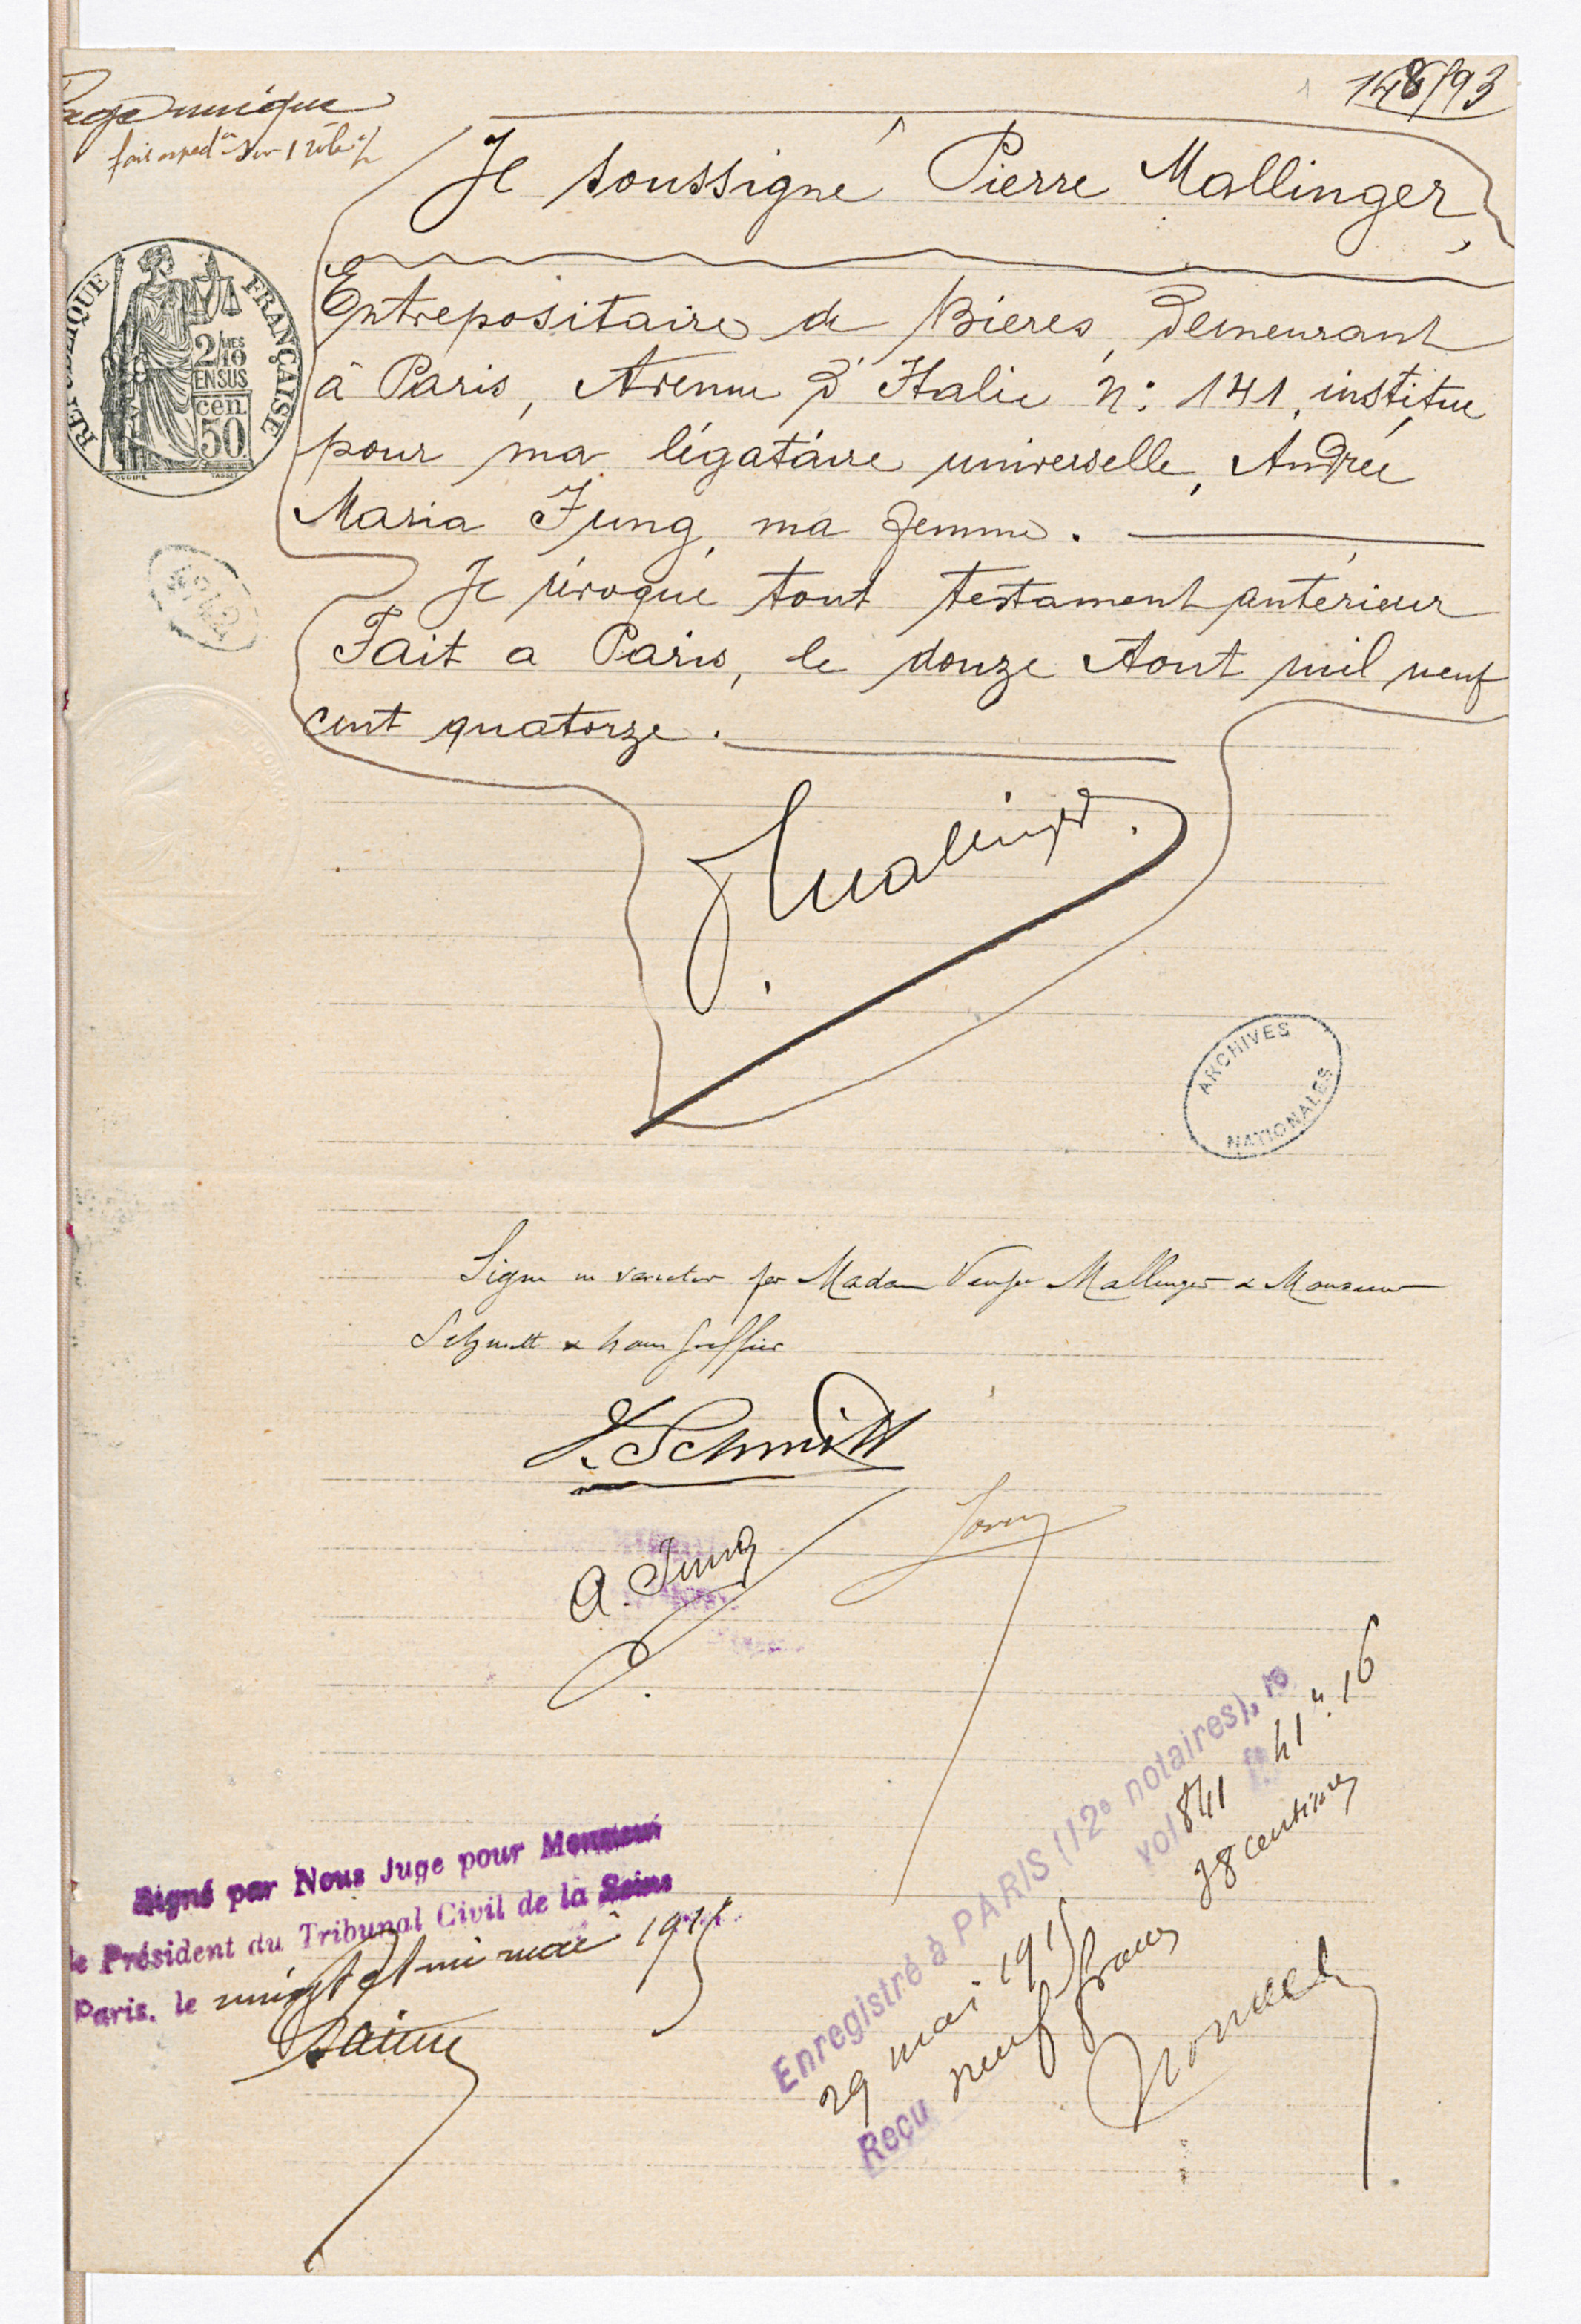 Page unique
148/93
Je soussigné Pierre Mallinger,
Entrepositaire de Bières, demeurant
à Paris, Avenue d'Italie n: 141, institue
pour ma légataire universelle, Andrée
Maria Jung, ma femme.
Je révoque tout testament antérieur
Fait a Paris, le douze Aout mil neuf
cent quatorze.
RÉPUBLIQUE FRANÇAISE
2/10 MES
EN SUS
cen.
50
Mallinger
ARCHIVES
NATIONALES
Signé ne varietur par Madame Veuve Mallinger & Monsieur
Schmitt & greffier
Schmitt
A. Jung
Signé par Nous Juge pour Monsieur
le Président du Tribunal Civil de la Seine
Paris, le vingt et un mai 1915
Enregistré à PARIS (12e notaires), le
29 mai 1915 vol 841 Fo 41 n. 16
Reçu neuf francs 38 centimes